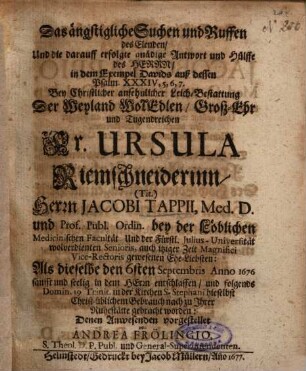 Das ängstigliche Suchen und Ruffen
des Elenden/
Und die darauff erfolgte gnädige Antwort und Hülffe
des HERRN/
in dem Exempel Davids auß dessen
Psalm XXXIV, 5, 6, 7.
Bey Christlicher ansehnlicher Leich-Bestattung
Der Weyland WolEdlen/ Groß-Ehr
und Tugendreichen
Fr. URSULA
Riemschneiderinn/
(Tit.)
Herrn JACOBI TAPPII, Med. D.
und Prof. Publ. Ordin. bey der Löblichen
Medicinischen Facultät und der Fürstl. Julius-Universität
wolverdienten Senioris, auch itziger Zeit Magnifici
Vice-Rectoris gewesenen Ehe-Liebsten:
Als dieselbe den 6sten Septembris Anno 1676
sanfft und seelig in dem HErrn entschlaffen/ und folgends
Domin. 19 Trinit. in der Kirchen S. Stephani hieselbst
Christ-üblichem Gebrauch nach zu Ihrer
Ruhestätte gebracht worden:
Denen Anwesenden vorgestellet
ANDREA FRÖLINGIO,
S. Theol. D. P. Publ. und General-Superintendenten.
Helmstedt/ Gedruckt bey Jacob Müllern/ Anno 1677.